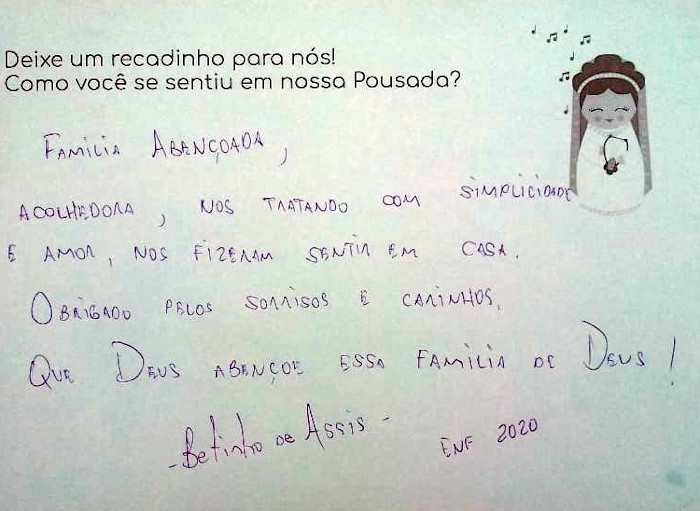 Deixe um recadinho para nós!
Como você se sentiu em nossa Pousada?
FAMILIA ABENÇOADA,
ACOLHEDORA, NOS TRATANDO COM SIMPLICIDADE
E AMOR, NOS FIZERAM SENTIR EM CASA.
OBRIGADO PELOS SORRISOS E CARINHOS.
QUE DEUS ABENÇOE ESSA FAMILIA DE DEUS!
-Betinho de Assis-
ENF 2020